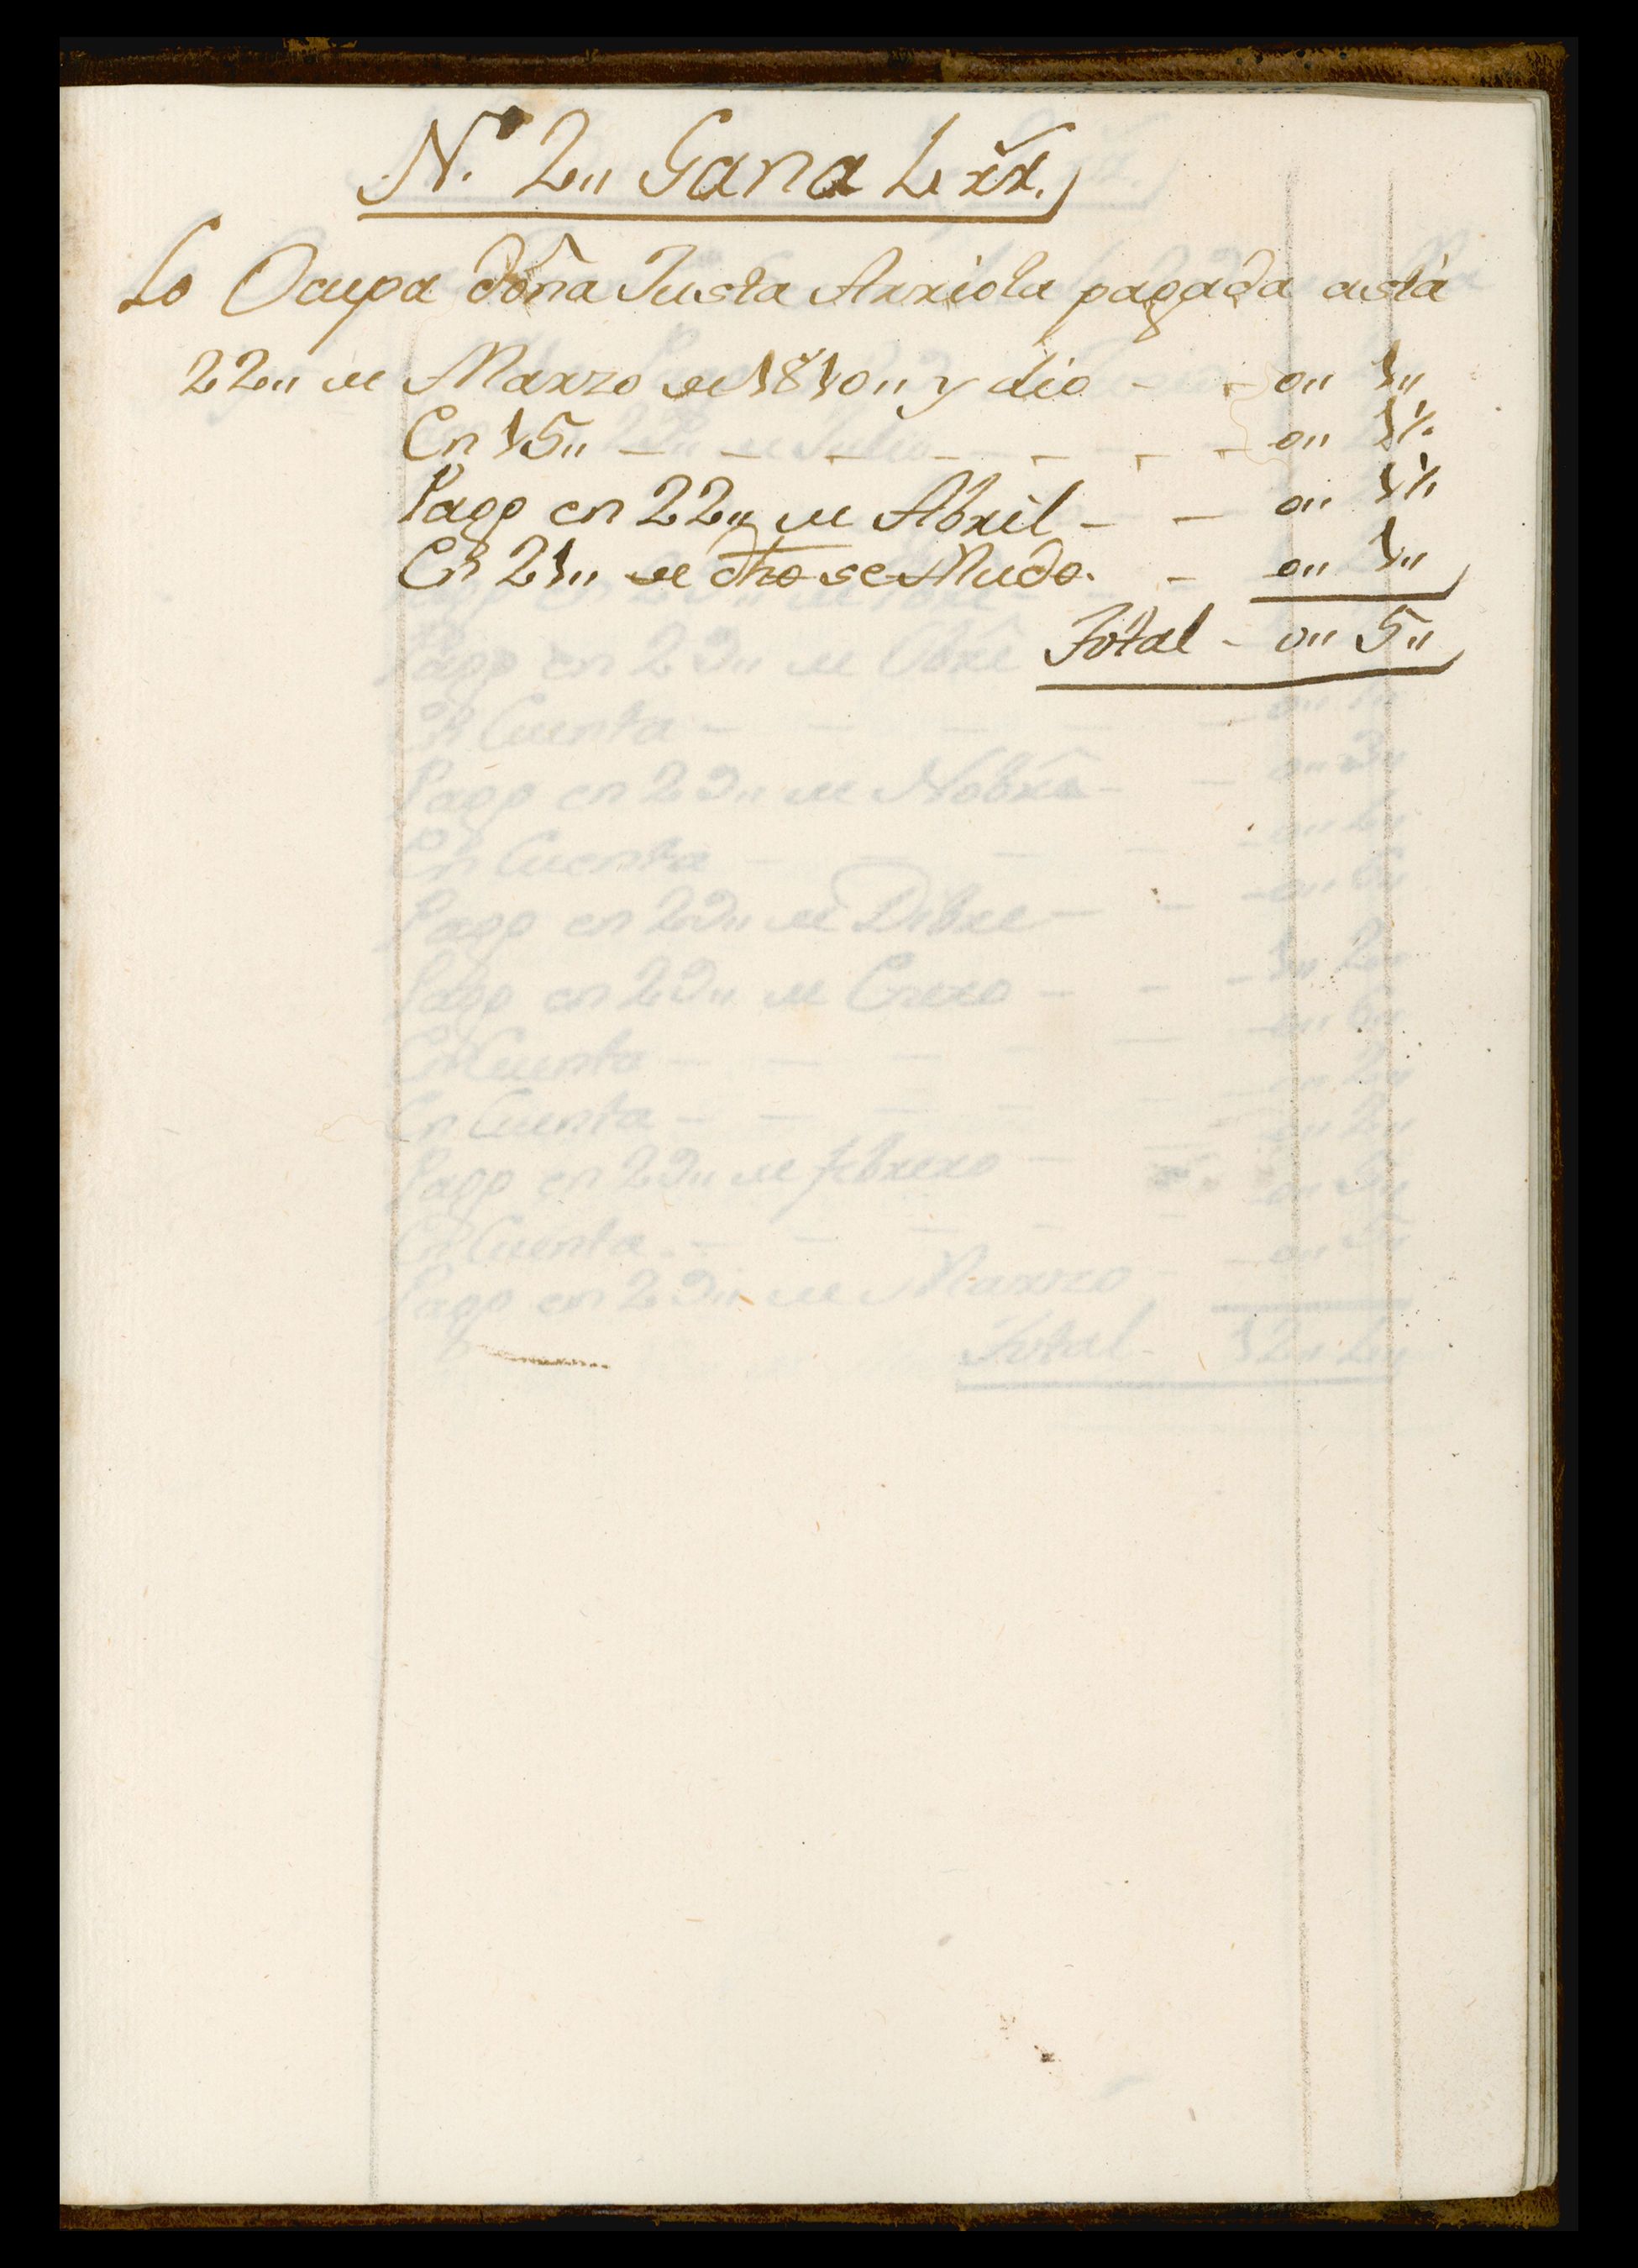 N.º 2,, Gana 4 rr.
Lo Ocupa doña Justa Arriola pagada astà
22,, de Marzo de 1810,, y dio - - 0,, 1,,
En 15,, - - - - - - - 0,, 1½
Pago en 22,, de Abril - - 0,, 1½
En 21,, de dho se Mudo. - 0,, 1,,
Total - 0,, 5,,